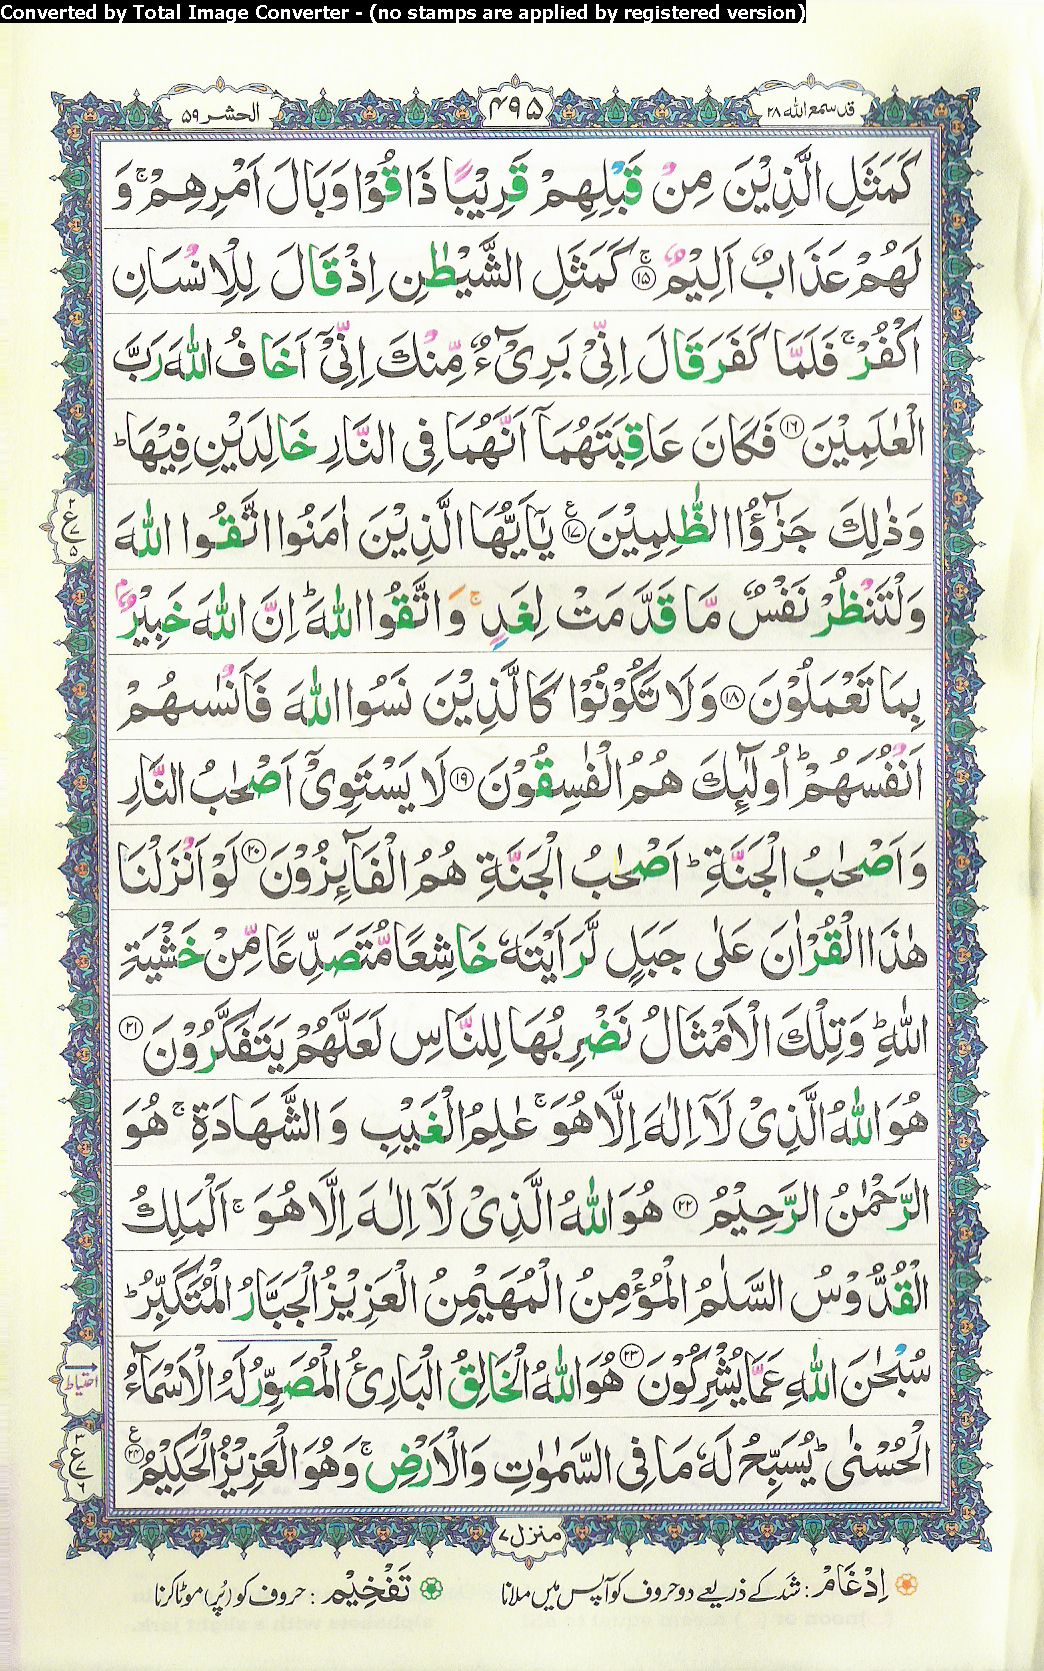 Converted by Total Image Converter - (no stamps are applied by registered version)
قد سمع الله ۲۸
۴۹۵
الحشر ۵۹
كَمَثَلِ الَّذِيْنَ مِنْ قَبْلِهِمْ قَرِيْبًا ذَاقُوْا وَبَالَ اَمْرِهِمْ ۚ وَ
لَهُمْ عَذَابٌ اَلِيْمٌ ۚ ⑮ كَمَثَلِ الشَّيْطٰنِ اِذْ قَالَ لِلْاِنْسَانِ
اكْفُرْ ۚ فَلَمَّا كَفَرَ قَالَ اِنِّىْ بَرِىْٓءٌ مِّنْكَ اِنِّىْٓ اَخَافُ اللّٰهَ رَبَّ
الْعٰلَمِيْنَ ⑯ فَكَانَ عَاقِبَتَهُمَآ اَنَّهُمَا فِى النَّارِ خَالِدَيْنِ فِيْهَا ؕ
وَذٰلِكَ جَزٰٓؤُا الظّٰلِمِيْنَ ⑰ يٰٓاَيُّهَا الَّذِيْنَ اٰمَنُوا اتَّقُوا اللّٰهَ
وَلْتَنْظُرْ نَفْسٌ مَّا قَدَّمَتْ لِغَدٍ ۚ وَاتَّقُوا اللّٰهَ ؕ اِنَّ اللّٰهَ خَبِيْرٌۢ
بِمَا تَعْمَلُوْنَ ⑱ وَلَا تَكُوْنُوْا كَالَّذِيْنَ نَسُوا اللّٰهَ فَاَنْسٰىهُمْ
اَنْفُسَهُمْ ؕ اُولٰٓئِكَ هُمُ الْفٰسِقُوْنَ ⑲ لَا يَسْتَوِىْٓ اَصْحٰبُ النَّارِ
وَاَصْحٰبُ الْجَنَّةِ ؕ اَصْحٰبُ الْجَنَّةِ هُمُ الْفَآئِزُوْنَ ⑳ لَوْ اَنْزَلْنَا
هٰذَا الْقُرْاٰنَ عَلٰى جَبَلٍ لَّرَاَيْتَهٗ خَاشِعًا مُّتَصَدِّعًا مِّنْ خَشْيَةِ
اللّٰهِ ؕ وَتِلْكَ الْاَمْثَالُ نَضْرِبُهَا لِلنَّاسِ لَعَلَّهُمْ يَتَفَكَّرُوْنَ ㉑
هُوَ اللّٰهُ الَّذِىْ لَآ اِلٰهَ اِلَّا هُوَ ۚ عٰلِمُ الْغَيْبِ وَالشَّهَادَةِ ۚ هُوَ
الرَّحْمٰنُ الرَّحِيْمُ ㉒ هُوَ اللّٰهُ الَّذِىْ لَآ اِلٰهَ اِلَّا هُوَ ۚ اَلْمَلِكُ
الْقُدُّوْسُ السَّلٰمُ الْمُؤْمِنُ الْمُهَيْمِنُ الْعَزِيْزُ الْجَبَّارُ الْمُتَكَبِّرُ ؕ
سُبْحٰنَ اللّٰهِ عَمَّا يُشْرِكُوْنَ ㉓ هُوَ اللّٰهُ الْخَالِقُ الْبَارِئُ الْمُصَوِّرُ لَهُ الْاَسْمَآءُ
الْحُسْنٰى ؕ يُسَبِّحُ لَهٗ مَا فِى السَّمٰوٰتِ وَالْاَرْضِ ۚ وَهُوَ الْعَزِيْزُ الْحَكِيْمُ ㉔
۲ ع ۷ ۵
احتیاط
۳ ع ۷ ۶
منزل ۷
اِدْغَام : شد کے ذریعے دو حروف کو آپس میں ملانا
تَفْخِيْم : حروف کو (پُر) موٹا کرنا